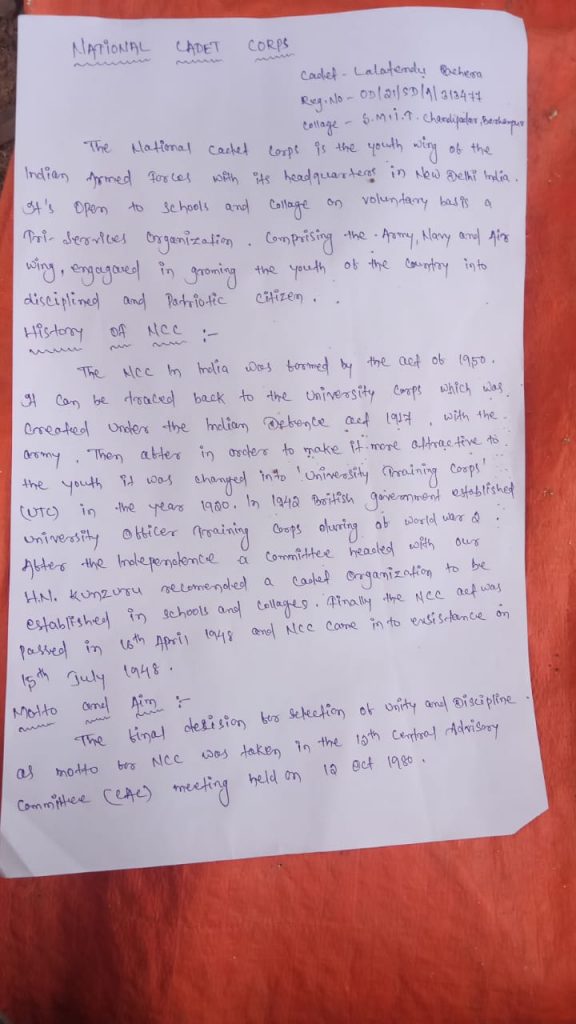 NATIONAL CADET CORPS
Cadet - Lalatendu Behera
Reg.No - OD/21/SD/A/313477
Collage - S.M.I.T. Chandipadar, Berhampur
The National Cadet Corps is the youth wing of the
Indian Armed Forces with its headquarters in New Delhi India.
It's open to schools and Collage on voluntary basis a
Tri-Services Organization. Comprising the Army, Navy and Air
wing, engagaed in groming the youth of the country into
disciplined and Patriotic citizen..
History of NCC :-
The NCC in India was formed by the act of 1950.
It can be traced back to the University Corps which was
Created under the Indian Defence act 1917, with the
army. Then after in order to make it more attractive to
the youth it was changed into 'University Training Corps'
(UTC) in the year 1920. In 1942 British government established
University Officer Training Corps during of world war 2.
After the Independence a Committee headed with our
H.N. Kunzuru recomended a cadet organization to be
established in schools and collages. Finally the NCC act was
passed in 16th April 1948 and NCC came in to exsistance on
15th July 1948.
Motto and Aim :-
The final desision for selection of unity and Discipline
as motto for NCC was taken in the 12th Central Advisory
Committee (CAC) meeting held on 12 Oct 1980.